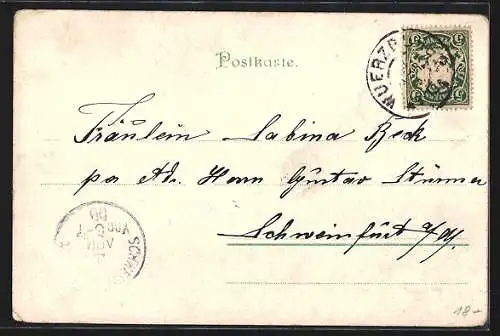 Postkarte.
WUERZB
5 5
5 5
Fräulein Sabina Beck
per Adr. Herrn Gustav Stürmer
Schweinfurt a/M.
SCHWEI
APR
VOR 6-7
00
18-